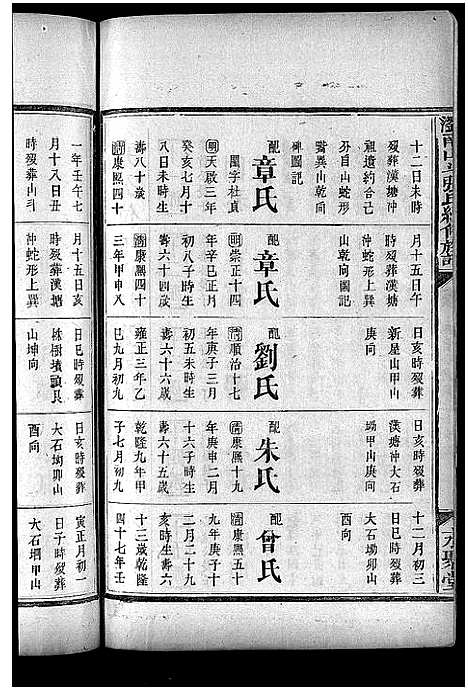 十二日未時
歿葬漢塘沖
祖遺約合己
分自山蛇形
嘴巽山乾向
碑圖記
配章氏
閨字社貞
明天啟三年
癸亥七月十
八日未時生
壽八十歲
清康熙四十
一年壬午七
月十八日丑
時歿葬山斗
月十五日午
時歿葬漢塘
沖蛇形上巽
山乾向圖記
配章氏
明崇正十四
年辛巳正月
初八子時生
壽六十四歲
清康熙四十
三年甲申八
月十五日亥
時歿葬漢塘
沖蛇形上巽
日亥時歿葬
新屋山甲山
庚向
配劉氏
清順治十七
年庚子三月
初五未時生
壽六十六歲
雍正三年乙
巳九月初九
日巳時歿葬
株樹墳頭艮
山坤向
日亥時歿葬
漢塘沖大石
塌甲山庚向
配朱氏
清康熙十九
年庚申二月
十六子時生
壽六十五歲
乾隆九年甲
子七月初六
日亥時歿葬
大石塌卯山
酉向
十二月初三
日巳時歿葬
大石塌卯山
酉向
配曾氏
清康熙五十
九年庚子十
二月二十九
亥時生壽六
十三歲乾隆
四十七年壬
寅正月初一
日子時歿葬
大石塌甲山